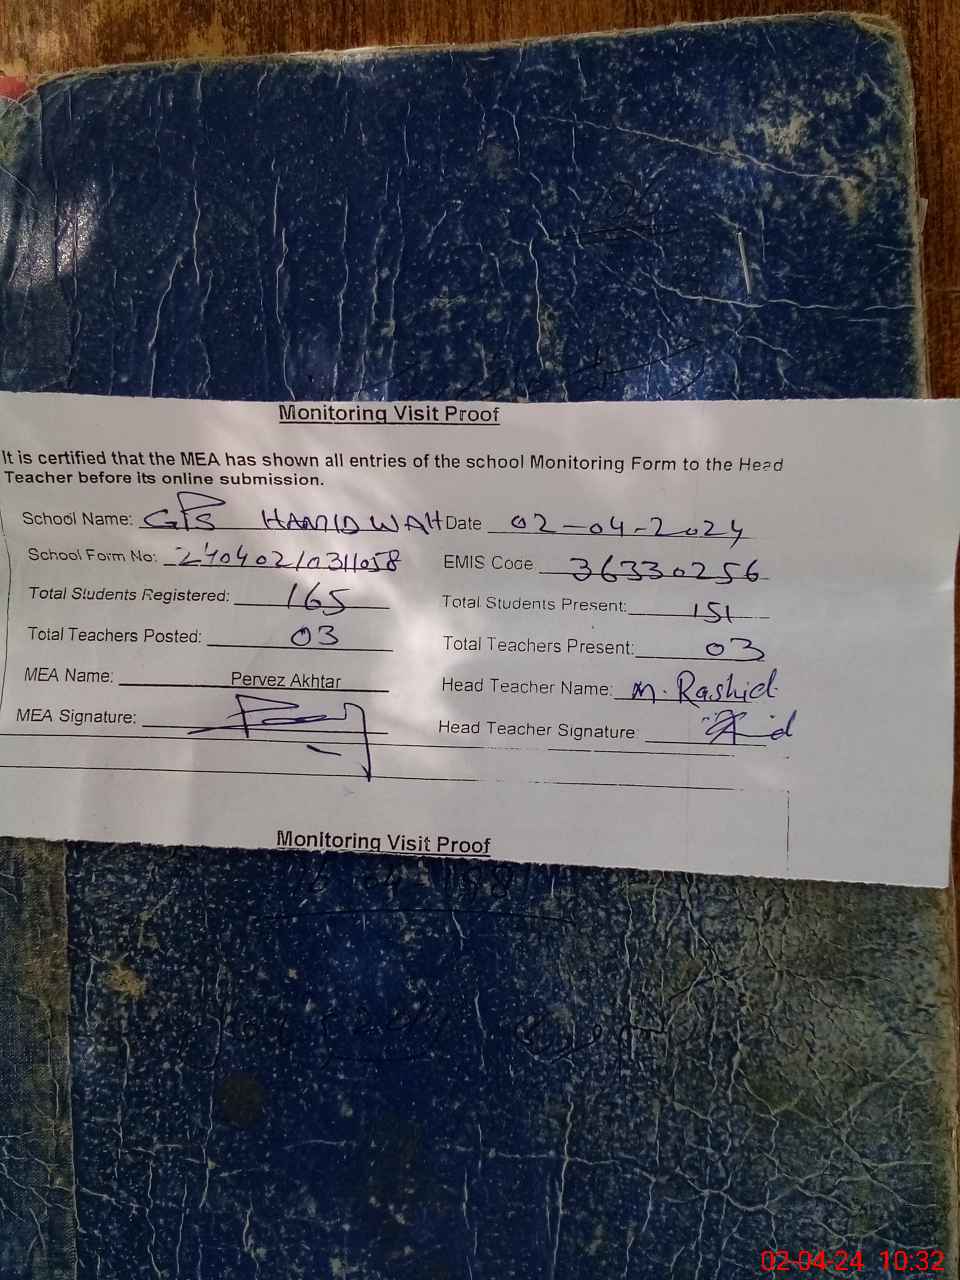 Monitoring Visit Proof
It is certified that the MEA has shown all entries of the school Monitoring Form to the Head
Teacher before its online submission.
School Name: GPS HAMID WAH Date 02-04-2024
School Form No: 2404021031058 EMIS Code 36330256
Total Students Registered: 165 Total Students Present: 151
Total Teachers Posted: 03 Total Teachers Present: 03
MEA Name: Pervez Akhtar Head Teacher Name: M. Rashid
MEA Signature: Head Teacher Signature:
Monitoring Visit Proof
02-04-24 10:32